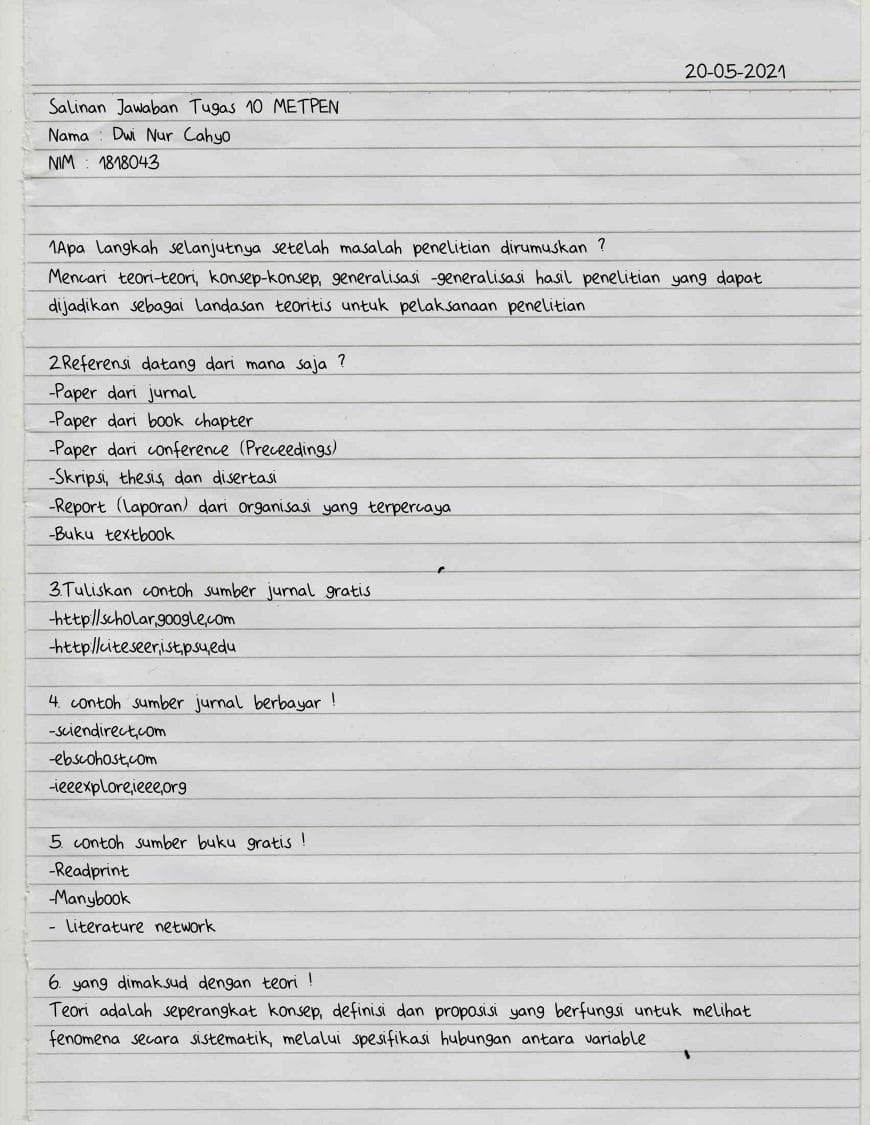 20-05-2021
Salinan Jawaban Tugas 10 METPEN
Nama : Dwi Nur Cahyo
NIM : 1818043
1Apa langkah selanjutnya setelah masalah penelitian dirumuskan ?
Mencari teori-teori, konsep-konsep, generalisasi -generalisasi hasil penelitian yang dapat
dijadikan sebagai landasan teoritis untuk pelaksanaan penelitian
2.Referensi datang dari mana saja ?
-Paper dari jurnal
-Paper dari book chapter
-Paper dari conference (Preceedings)
-Skripsi, thesis, dan disertasi
-Report (laporan) dari organisasi yang terpercaya
-Buku textbook
3.Tuliskan contoh sumber jurnal gratis
-http//scholar,google,com
-http//citeseer,ist,psu,edu
4. contoh sumber jurnal berbayar !
-sciendirect,com
-ebscohost,com
-ieeexplore,ieee,org
5. contoh sumber buku gratis !
-Readprint
-Manybook
- literature network
6. yang dimaksud dengan teori !
Teori adalah seperangkat konsep, definisi dan proposisi yang berfungsi untuk melihat
fenomena secara sistematik, melalui spesifikasi hubungan antara variable